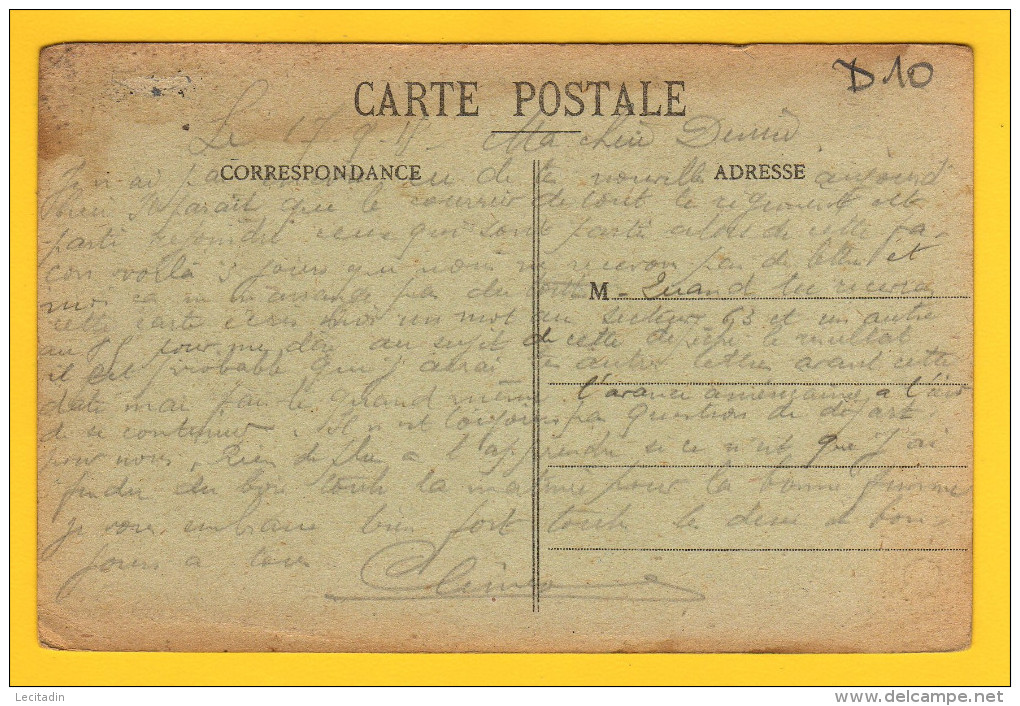 D10
CARTE POSTALE
Le 17 9 18 - Ma chère
CORRESPONDANCE
ADRESSE
Je n'ai pas encore eu de te nouvelle aujourd
Il parait que le courrier de tout le regiment est
parti rejoindre ceux qui sont parti alors de cette fa-
con voilà 3 jours que nous ne recevon pas de lettre et
moi ca ne m'arrange pas du tout
M - Quand tu recevra
cette carte ecris moi un mot au secteur 63 et un autre
au pour me dire au sujet de cette le resultat
il est probable que j'aurai les autres lettres avant cette
date mai fau le quand même. l'avance américaine a l'air
de se continuer. Il n'est toujours pas question de départ
pour nous. Rien de plus a l'apprendre si ce n'est que J'ai
fendu du bois toute la matinée pour la bonne femme
je vous embrasse bien fort toute les deux a bon-
jours a tous
Lecitadin
www.delcampe.net